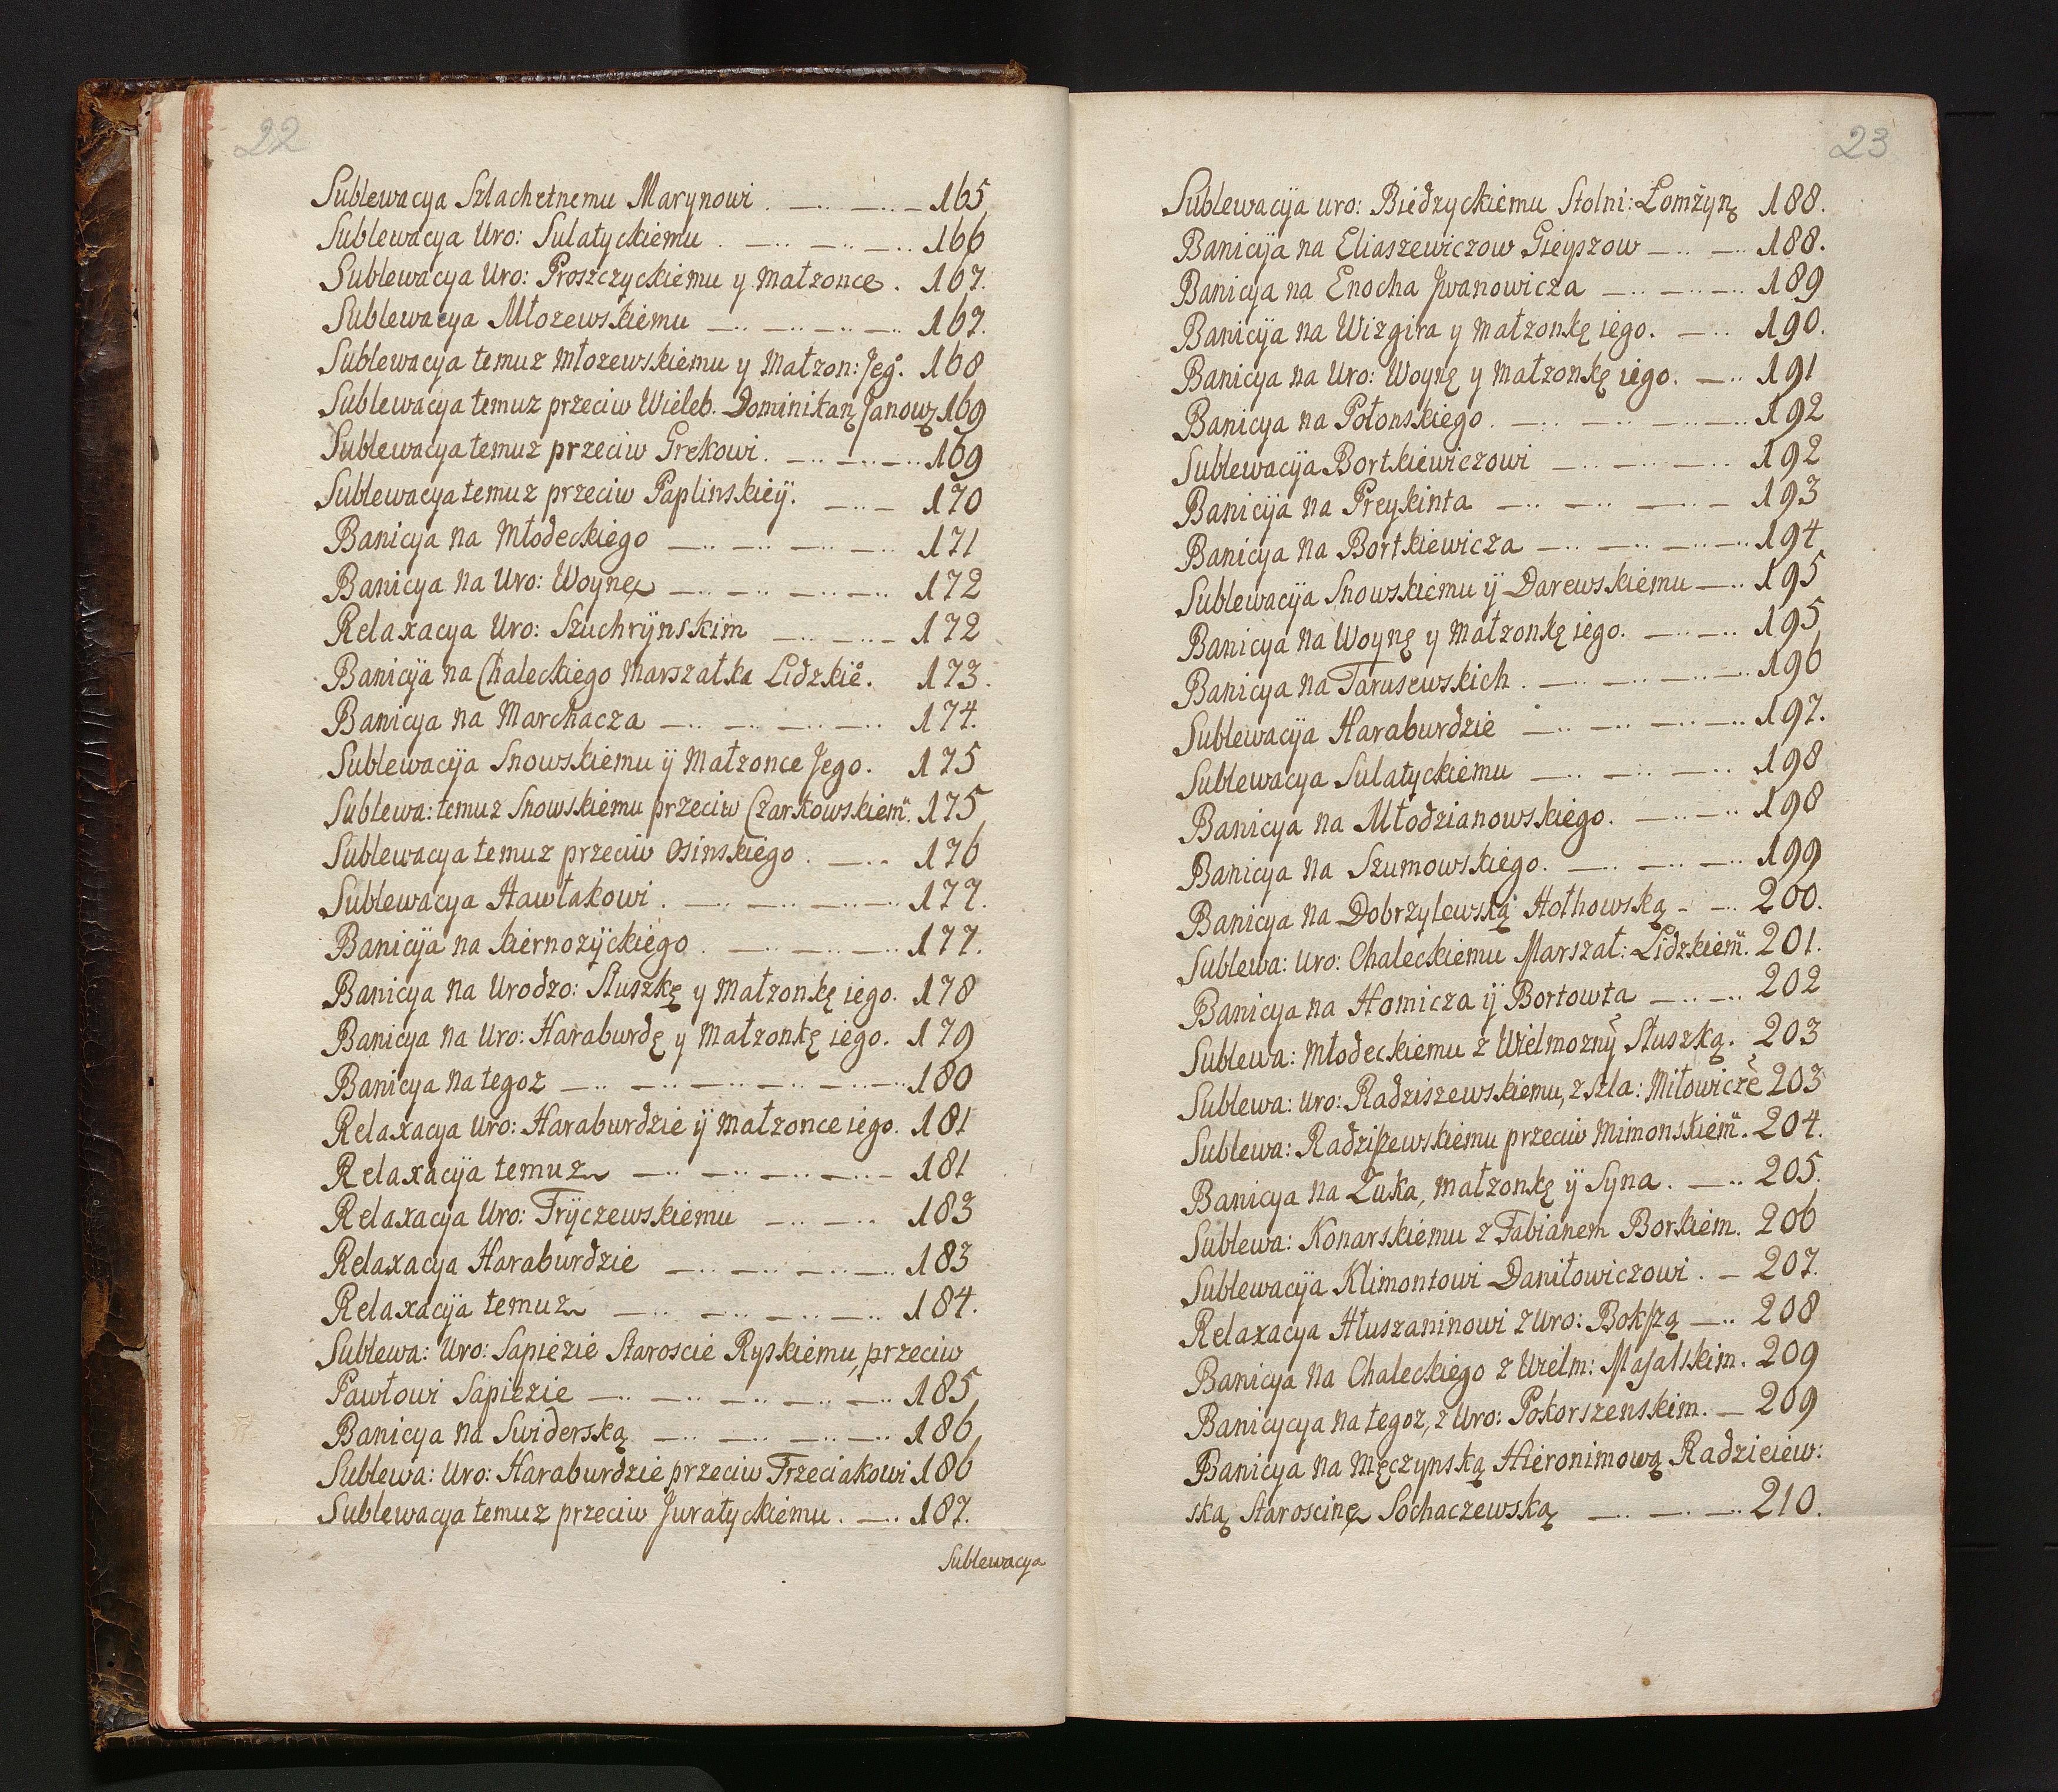 22
Sublewacya Szlachetnemu Marynowi . —.. —.. — 165
Sublewacya Uro: Sulatyckiemu . —.. —.. —.. 166
Sublewacya Uro: Proszczyckiemu y Małzonce . 167.
Sublewacya Młozewskiemu —.. —.. —.. —.. 167.
Sublewacya temuz Młozewskiemu y Małzon: Jegº. 168
Sublewacya temuz przeciw Wieleb. Dominikanę Janowę 169
Sublewacya temuz przeciw Grekowi . —.. —.. —.. 169
Sublewacya temuz przeciw Paplinskieÿ. —.. — 170
Banicya na Młodeckiego —.. —.. —.. —.. 171
Banicya na Uro: Woynę —.. —.. —.. —.. 172
Relaxacya Uro: Szuchrÿnskim —.. —.. — 172
Banicÿa na Chaleckiego Marszałka Lidzkiº. 173.
Banicya na Marchacza —.. —.. —.. —.. 174.
Sublewacÿa Snowskiemu ÿ Małzonce Jego. 175
Sublewa: temuz Snowskiemu przeciw Czarkowskiemu. 175
Sublewacya temuz przeciw Osinskiego . —.. 176
Sublewacya Hawłakowi . —.. —.. —.. — 177.
Banicÿa na Kiernozÿckiego . —.. —.. —.. 177.
Banicya na Urodzo: Słuszkę y Małzonkę iego. 178
Banicya na Uro: Haraburdę y Małzonkę iego. 179
Banicya na tegoz —.. —.. —.. —.. —.. —.. 180
Relaxacya Uro: Haraburdzie ÿ Małzonce iego. 181
Relaxacÿa temuz —.. —.. —.. —.. — 181
Relaxacya Uro: Trÿczewskiemu —.. —.. 183
Relaxacya Haraburdzie —.. —.. —.. —.. 183
Relaxacÿa temuz —.. —.. —.. —.. 184.
Sublewa: Uro: Sapiezie Staroscie Ryskiemu, przeciw
Pawłowi Sapiezie —.. —.. —.. —.. —.. 185
Banicya na Swiderską —.. —.. —.. —.. 186
Sublewa: Uro: Haraburdzie przeciw Trzeciakowi 186
Sublewacya temuz przeciw Juratyckiemu . —.. 187.
Sublewacya
23
Sublewacÿa uro: Biedzyckiemu Stolni: Łomżynę 188.
Banicÿa na Eliaszewiczow Gieyszow —.. — 188.
Banicya na Enocha Jwanowicza —.. —.. —.. 189
Banicÿa na Wizgira y małzonkę iego. —.. 190.
Banicya na Uro: Woynę y Małzonkę iego. —.. 191
Banicya na Połonskiego . —.. —.. —.. —.. 192
Sublewacÿa Bortkiewiczowi —.. —.. —.. 192
Banicÿa na Preykinta —.. —.. —.. — 193
Banicya na Bortkiewicza —.. —.. —.. —.. 194
Sublewacÿa Snowskiemu ÿ Darewskiemu —.. 195
Banicya na Woynę y Małzonkę iego. —.. —.. 195
Banicya na Tarusewskich . —.. —.. —.. —.. 196
Sublewacÿa Haraburdzie —.. —.. —.. —.. 197.
Sublewacya Sulatyckiemu —.. —.. —.. 198
Banicya na Młodzianowskiego. —.. —.. 198
Banicya na Szumowskiego. —.. —.. —.. 199
Banicya na Dobrzylewską Hołhowską - —.. 200.
Sublewa: Uro: Chaleckiemu Marszał: Lidzkiemu. 201.
Banicya na Homicza ÿ Bortowta —.. —.. 202
Sublewa: Młodeckiemu z Wielmozny Słuszką. 203
Sublewa: Uro: Radziszewskiemu, z Szla: Miłowicze 203
Sublewa: Radziszewskiemu przeciw Mimonskiemu. 204.
Banicya na Żuka, Małzonkę ÿ Syna . —.. 205.
Sublewa: Konarskiemu z Fabianem Borkiem. 206
Sublewacÿa Klimontowi Daniłowiczowi . — 207.
Relaxacya Hłuszaninowi z Uro: Bokszą —.. 208
Banicya na Chaleckiego z Wielm: Masalskim. 209
Banicycya na tegoz, z Uro: Pokorszenskim. — 209
Banicya na Męczynską Hieronimową Radzieiew:
ską Staroscinę Sochaczewską —.. —.. —.. 210.